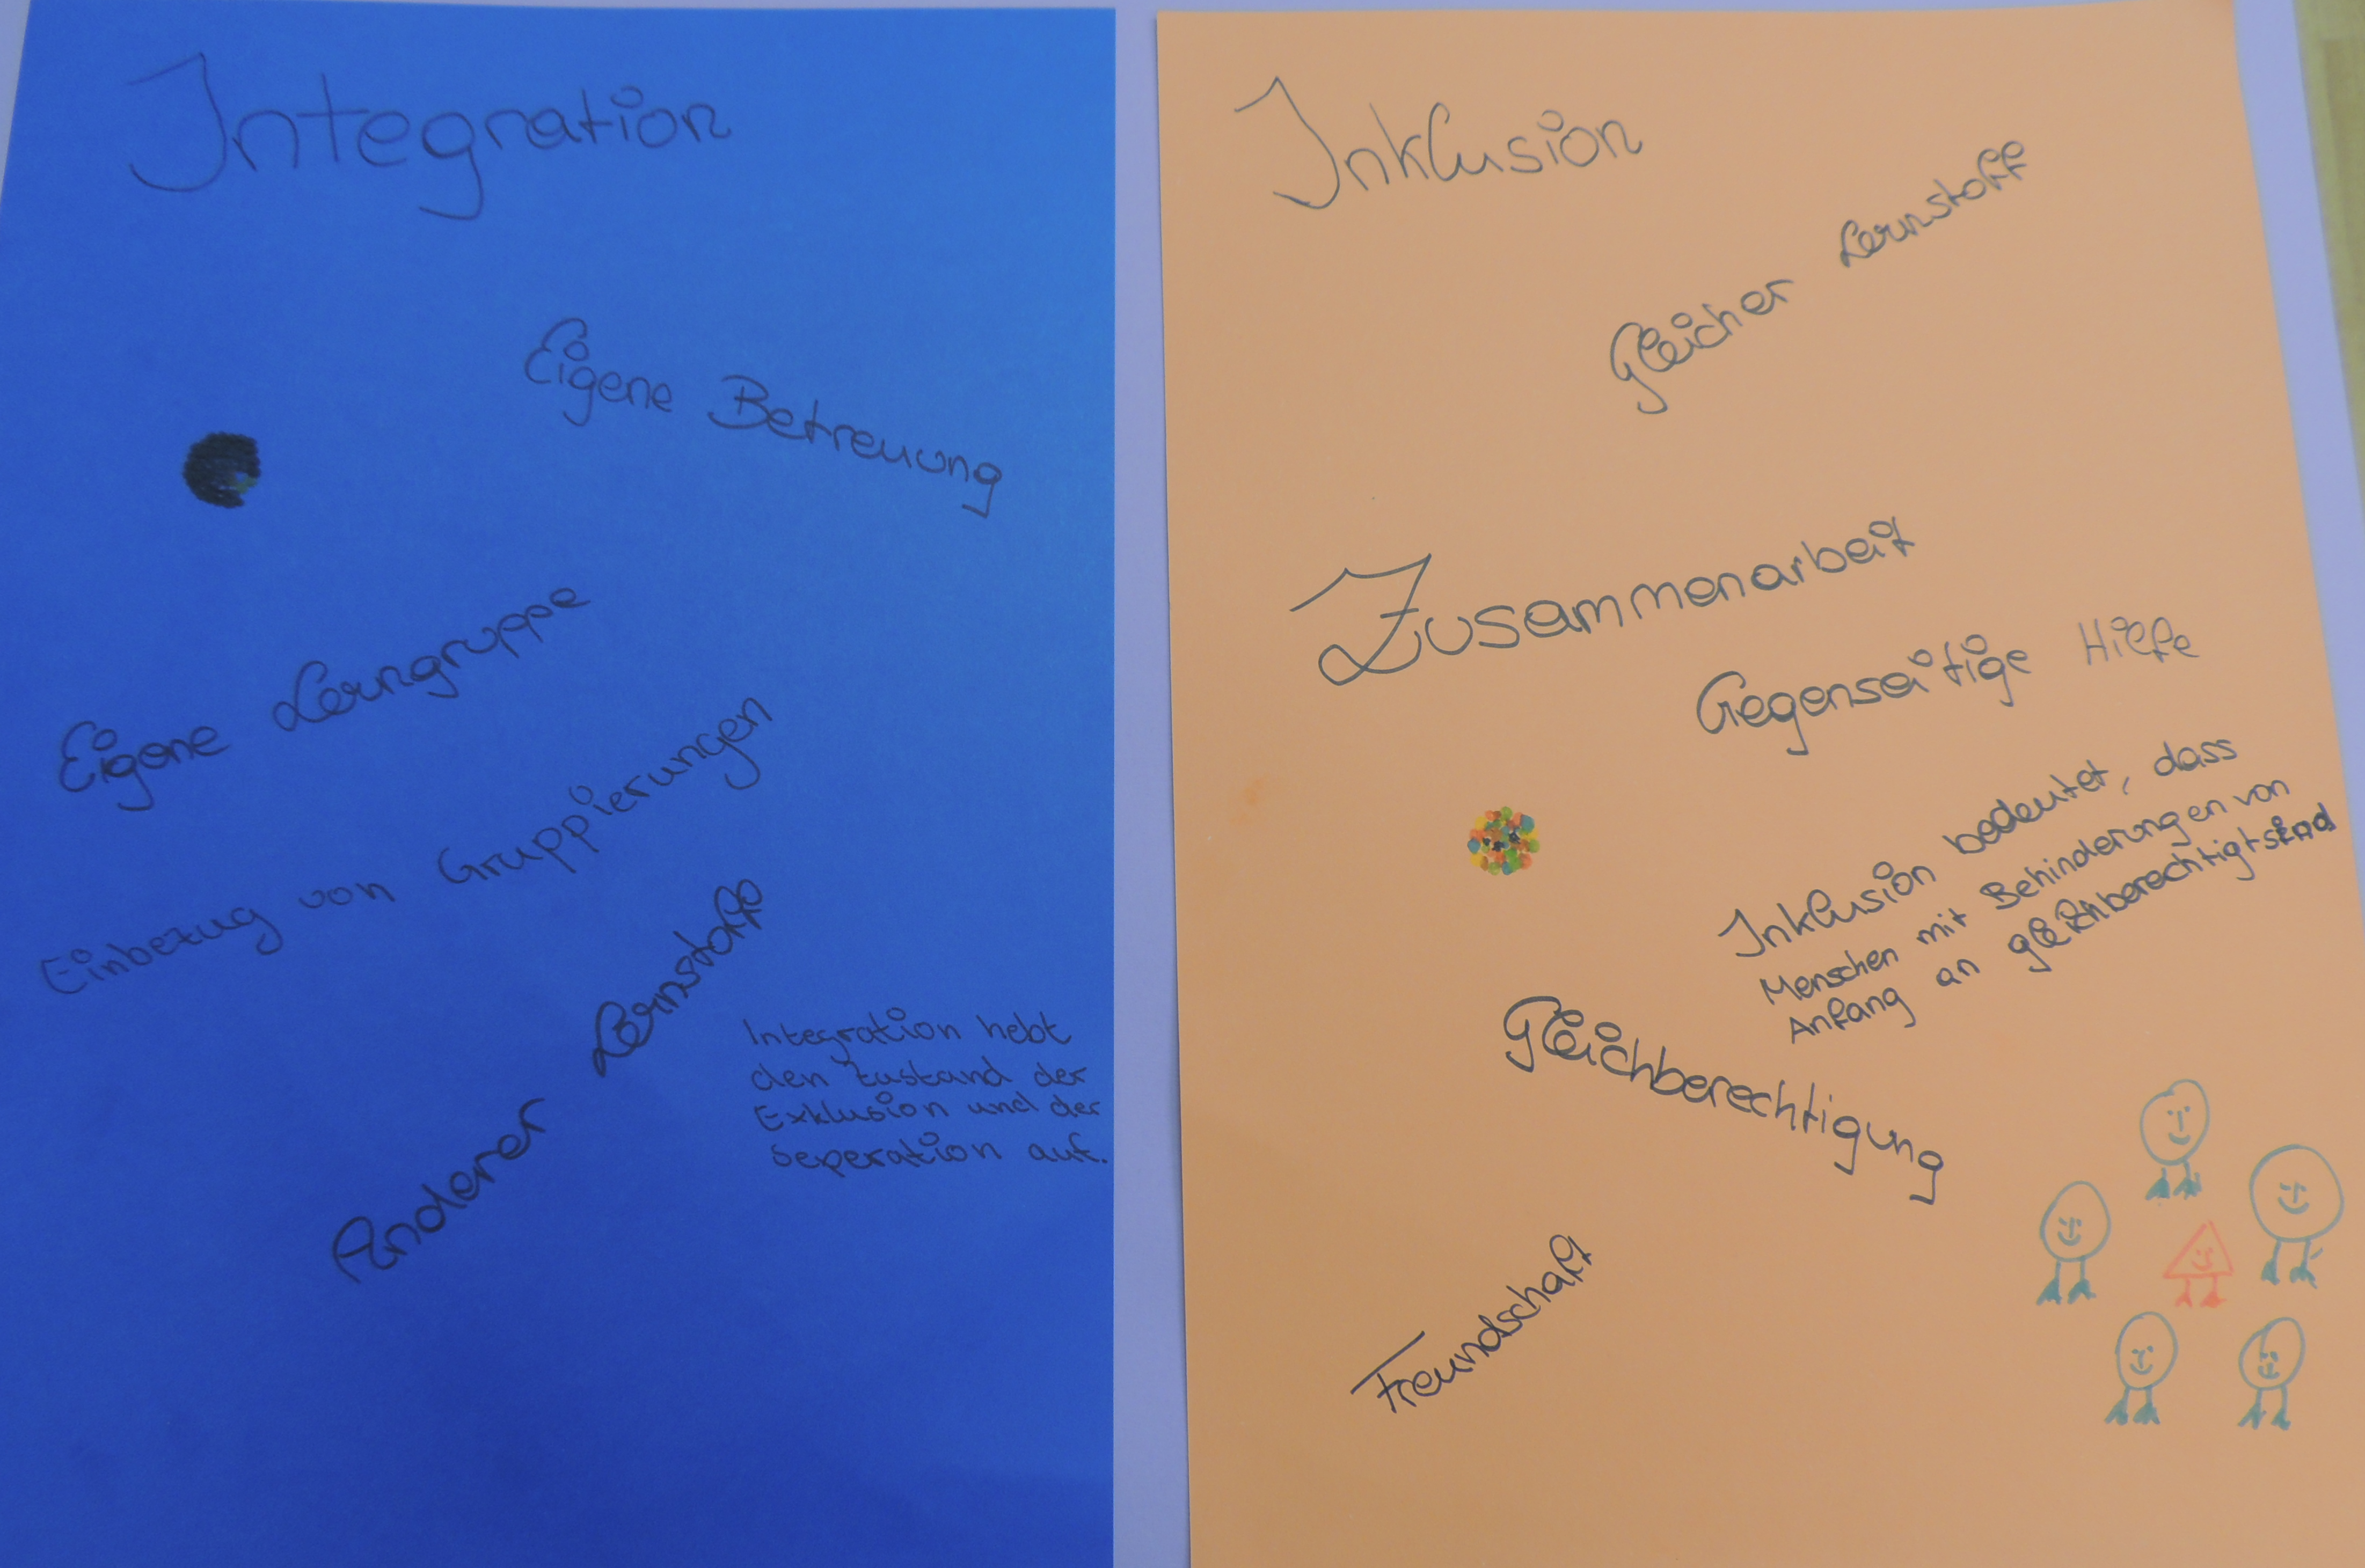 Integration
Eigene Betreuung
Eigene Lerngruppe
Einbezug von Gruppierungen
Anderer Lernstoff
Integration hebt
den Zustand der
Exklusion und der
Seperation auf.
Inklusion
Gleicher Lernstoff
Zusammenarbeit
Gegenseitige Hilfe
Inklusion bedeutet, dass
Menschen mit Behinderungen von
Anfang an gleichberechtigt sind
Gleichberechtigung
Freundschaft